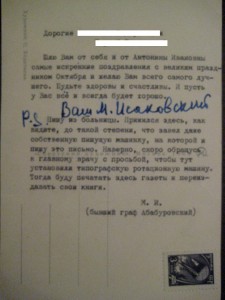 Дорогие
Шлю Вам от себя и от Антонины Ивановны
самые искренние поздравления с великим празд-
ником Октября и желаю Вам всего самого луч-
шего. Будьте здоровы и счастливы. И пусть
у Вас всё и всегда будет хорошо.
Ваш М. Исаковский
P.S. Пишу из больницы. Прижился здесь, как
видите, до такой степени, что завел даже
собственную пишущую машинку, на которой и
пишу это письмо. Наверно, скоро обращусь
к главному врачу с просьбой, чтобы тут
установили типографскую ротационную машину.
Тогда буду печатать здесь газеты и переиз-
давать свои книги.
М. И.
(бывший граф Абабуровский)